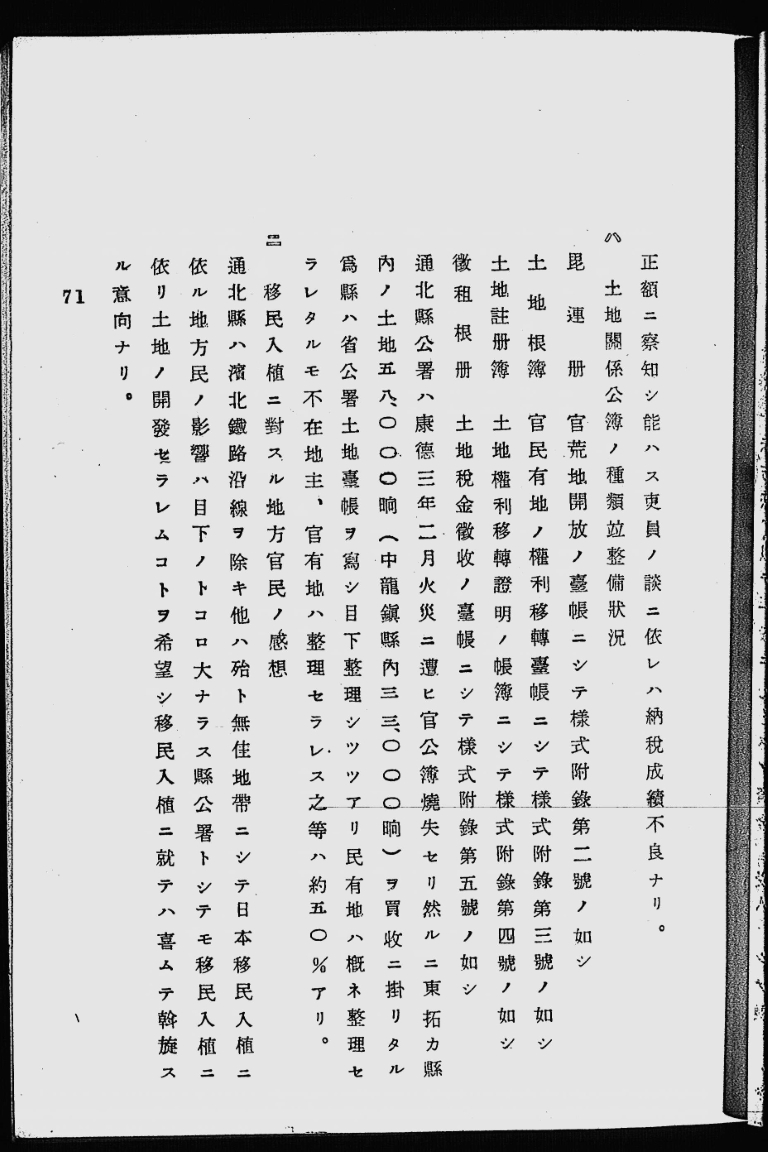 正額ニ察知シ能ハス吏員ノ談ニ依レハ納税成績不良ナリ。
ハ 土地關係公簿ノ種類竝整備狀況
毘連册 官荒地開放ノ臺帳ニシテ樣式附錄第二號ノ如シ
土地根簿 官民有地ノ權利移轉臺帳ニシテ樣式附錄第三號ノ如シ
土地註册簿 土地權利移轉證明ノ帳簿ニシテ樣式附錄第四號ノ如シ
徵租根册 土地稅金徵收ノ臺帳ニシテ樣式附錄第五號ノ如シ
通北縣公署ハ康德三年二月火災ニ遭ヒ官公簿燒失セリ然ルニ東拓カ縣
內ノ土地五八、〇〇〇晌(中龍鎭縣內三三、〇〇〇晌)ヲ買收ニ掛リタル
爲縣ハ省公署土地臺帳ヲ寫シ目下整理シツツアリ民有地ハ槪ネ整理セ
ラレタルモ不在地主、官有地ハ整理セラレス之等ハ約五〇%アリ。
ニ 移民入植ニ對スル地方官民ノ感想
通北縣ハ濱北鐵路沿線ヲ除キ他ハ殆ト無住地帶ニシテ日本移民入植ニ
依ル地方民ノ影響ハ目下ノトコロ大ナラス縣公署トシテモ移民入植ニ
依リ土地ノ開發セラレムコトヲ希望シ移民入植ニ就テハ喜ムテ斡旋ス
ル意向ナリ。
71